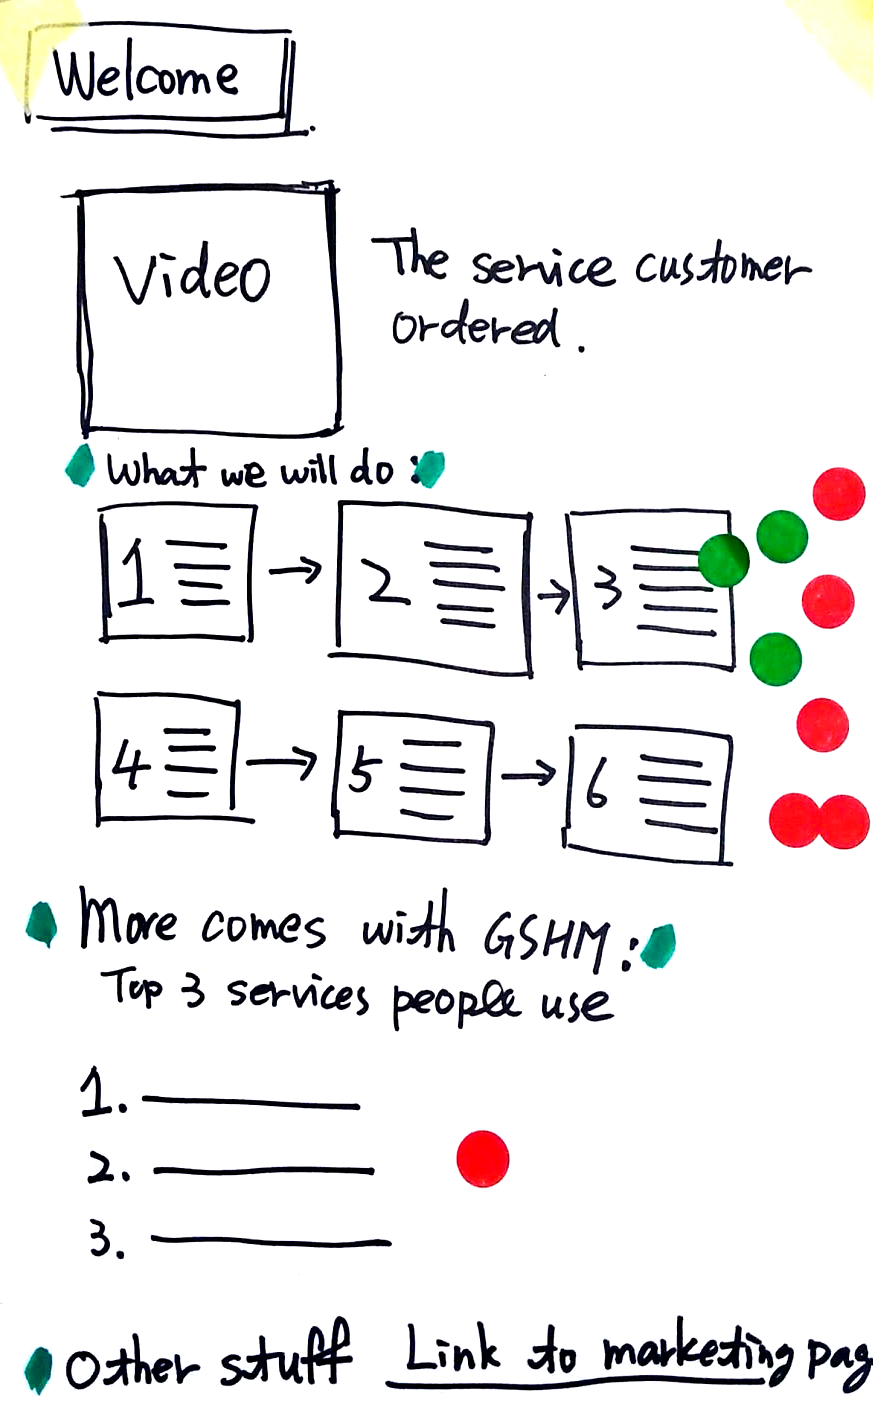 Welcome
Video
The service customer
ordered.
What we will do :
1 → 2 → 3
4 → 5 → 6
More comes with GSHM :
Top 3 services people use
1.
2.
3.
Other stuff Link to marketing pag